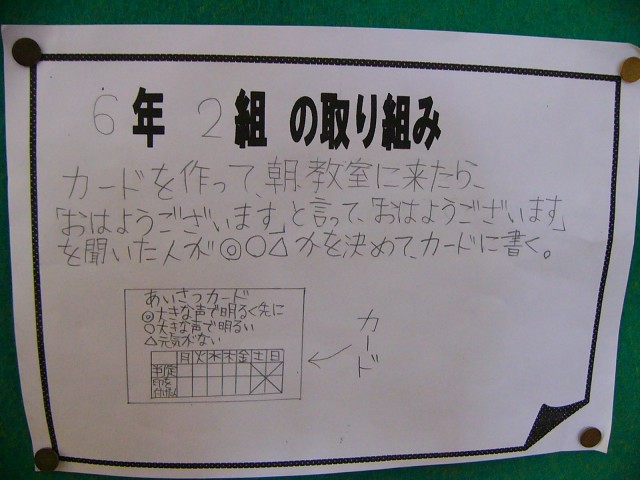 6年 2組 の取り組み
カードを作って、朝教室に来たら、
「おはようございます」と言って、「おはようございます」
を聞いた人が◎○△かを決めて、カードに書く。
あいさつカード
◎大きな声で明るく先に
○大きな声で明るい
△元気がない
月火水木金土日
判定
カード